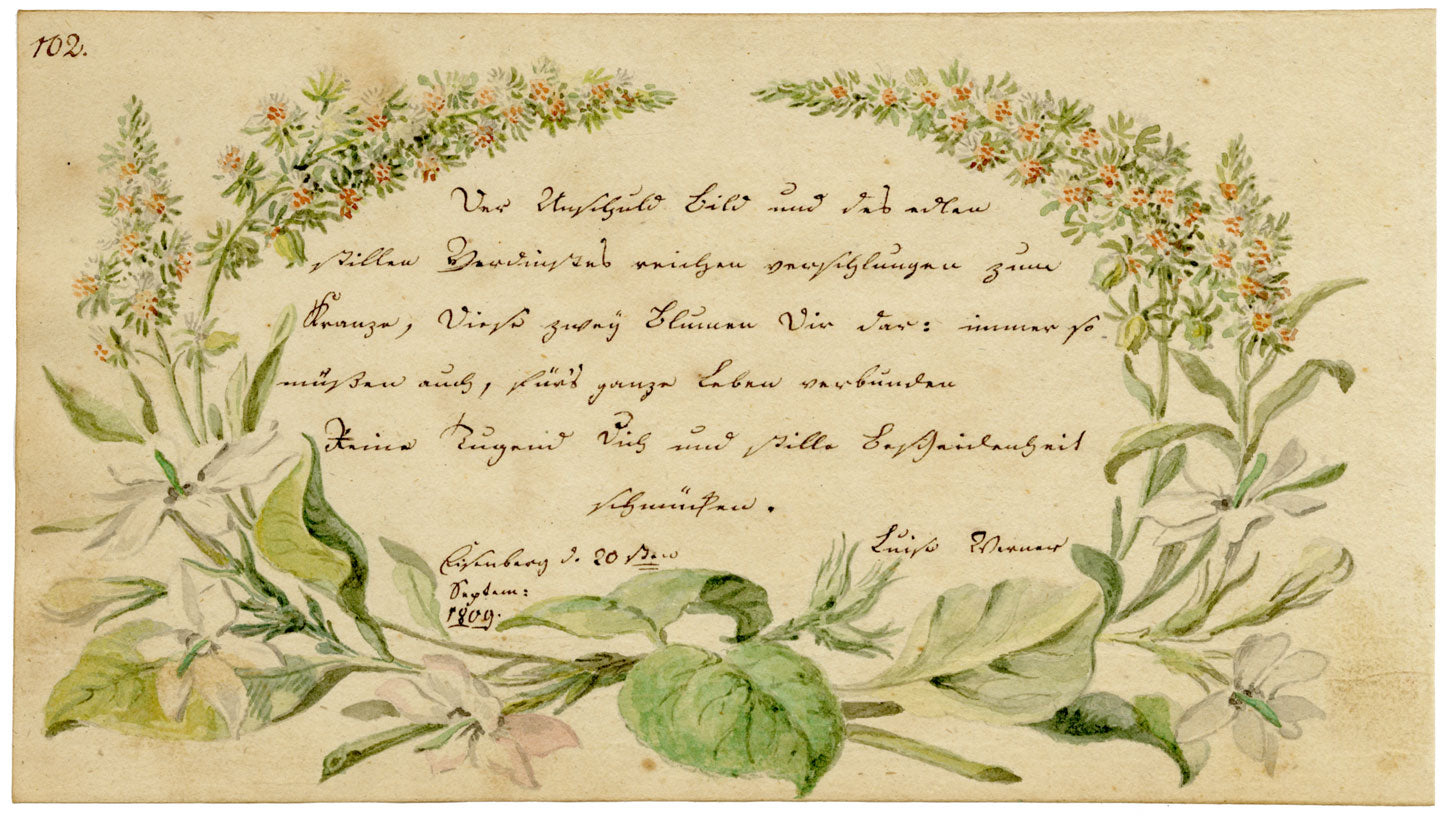 102.
Der Unschuld Bild und des edlen
stillen Verdinstes reichen verschlungen zum
Kranze, Diese zwey Blumen Dir dar: immer so
müßen auch, fürs ganze Leben verbunden
Reine Tugend Dich und stille Bescheidenheit
schmücken.
Luise Werner
Eisenberg d. 20 sten
Septem:
1809.